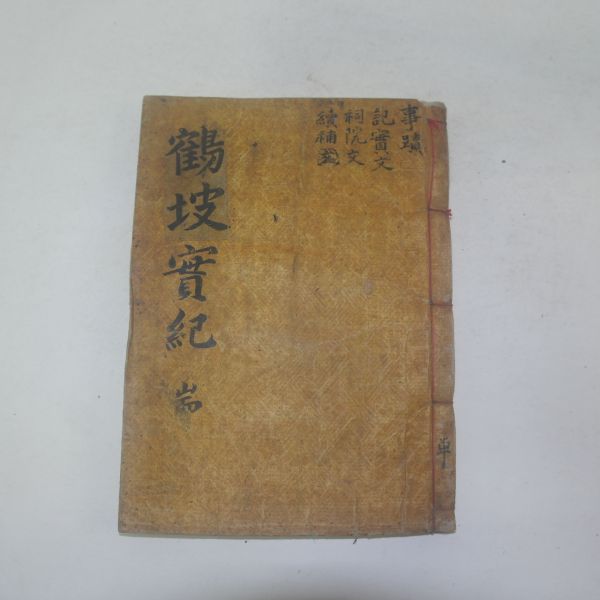 事蹟
記實文
祠院文
續補
鶴坡實紀 耑